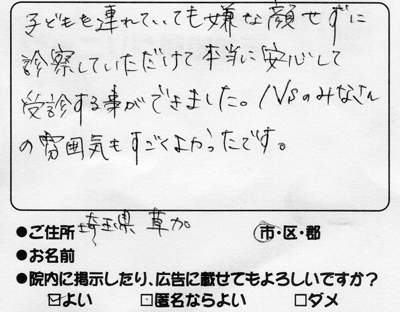 子どもを連れていても嫌な顔せずに
診察していただけて本当に安心して
受診する事ができました。Nsのみなさん
の雰囲気もすごくよかったです。
●ご住所 埼玉県 草加 市・区・郡
●お名前
●院内に掲示したり、広告に載せてもよろしいですか?
☑よい □匿名ならよい □ダメ